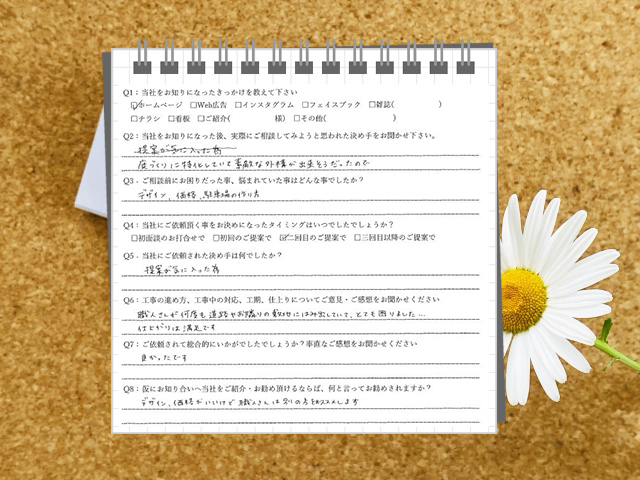 Q1：当社をお知りになったきっかけを教えて下さい
☑ホームページ □Web広告 □インスタグラム □フェイスブック □雑誌( )
□チラシ □看板 □ご紹介( 様) □その他( )
Q2：当社をお知りになった後、実際にご相談してみようと思われた決め手をお聞かせ下さい。
提案が気に入った為
庭づくりに特化していて素敵な外構が出来そうだったので
Q3：ご相談前にお困りだった事、悩まれていた事はどんな事でしたか？
デザイン、価格、駐車場の作り方
Q4：当社にご依頼頂く事をお決めになったタイミングはいつでしたでしょうか？
□初面談のお打合せで □初回のご提案で ☑二回目のご提案で □三回目以降のご提案で
Q5．当社にご依頼された決め手は何でしたか？
提案が気に入った為
Q6：工事の進め方、工事中の対応、工期、仕上りについてご意見・ご感想をお聞かせください
職人さんが何度も道路やお隣りの敷地にはみ出していて、とても困りました…
仕上がりは満足です
Q7：ご依頼されて総合的にいかがでしたでしょうか？率直なご感想をお聞かせください
良かったです
Q8：仮にお知り合いへ当社をご紹介・お勧め頂けるならば、何と言ってお勧めされますか？
デザイン、価格がいいけど職人さんは別の方をおススメします